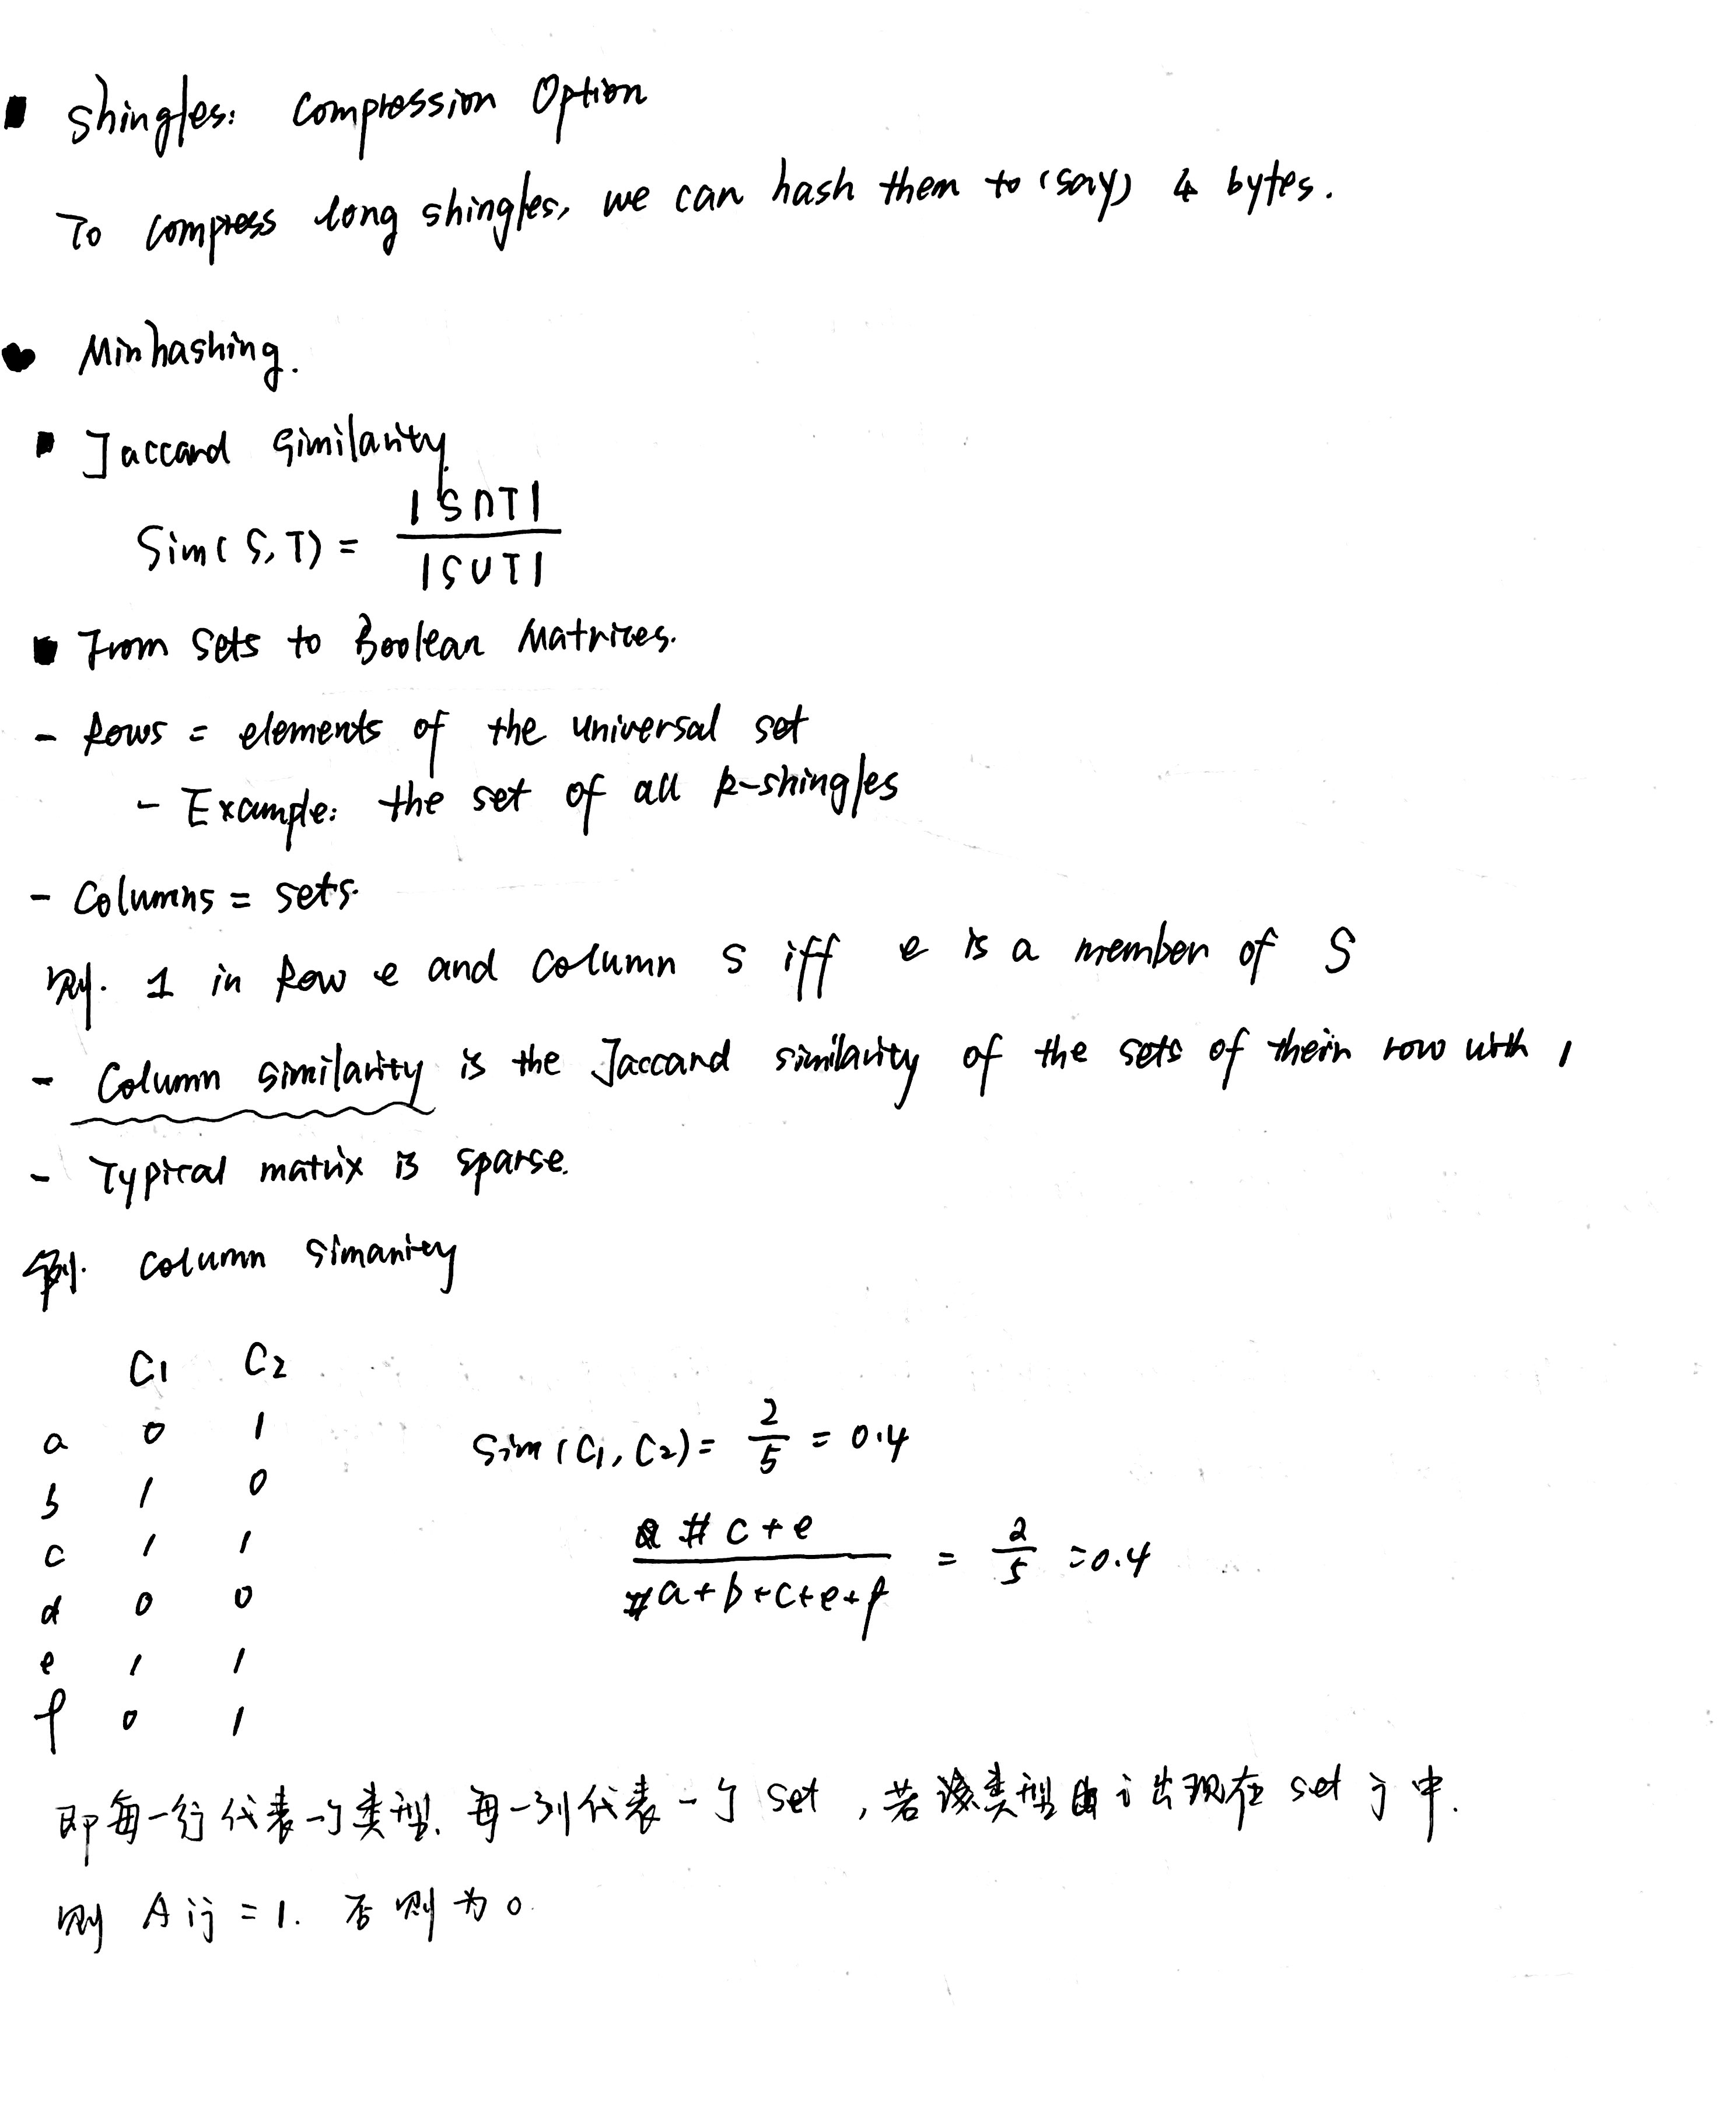 ■ Shingles: Compression Option
To compress long shingles, we can hash them to (say) 4 bytes.
● Minhashing.
■ Jaccard Similarity.
Sim(S,T) = |S∩T| / |S∪T|
■ From Sets to Boolean Matrices.
- Rows = elements of the universal set
- Example: the set of all k-shingles
- Columns = sets.
则. 1 in Row e and column S iff e is a member of S
- Column similarity is the Jaccard similarity of the sets of their row with 1
- Typical matrix is sparse.
例. column simarity
C1 C2
a 0 1
b 1 0
c 1 1
d 0 0
e 1 1
f 0 1
Sim(C1, C2) = 2/5 = 0.4
# c+e / #a+b+c+e+f = 2/5 = 0.4
即每一行代表一个类型. 每一列代表一个 set , 若该类型 i 出现在 set j 中.
则 Aij = 1. 否则为 0.